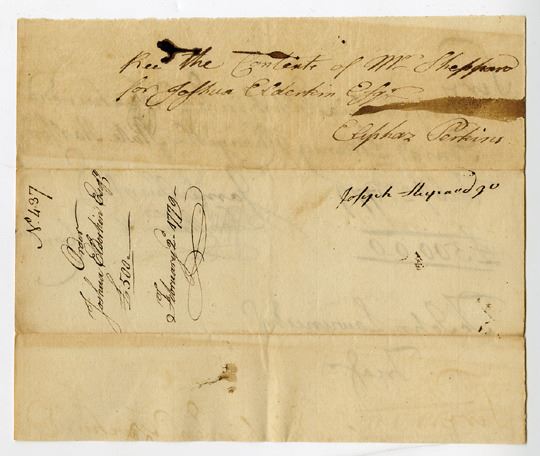 Recd the Contents of Mr Sheppard
for Joshua Elderkin Esqr
Eliphaz Perkins
Joseph Shepard Jr
No. 437
Order
Joshua Elderkin Esqr
£500
February 2d 1779
£500.0.0